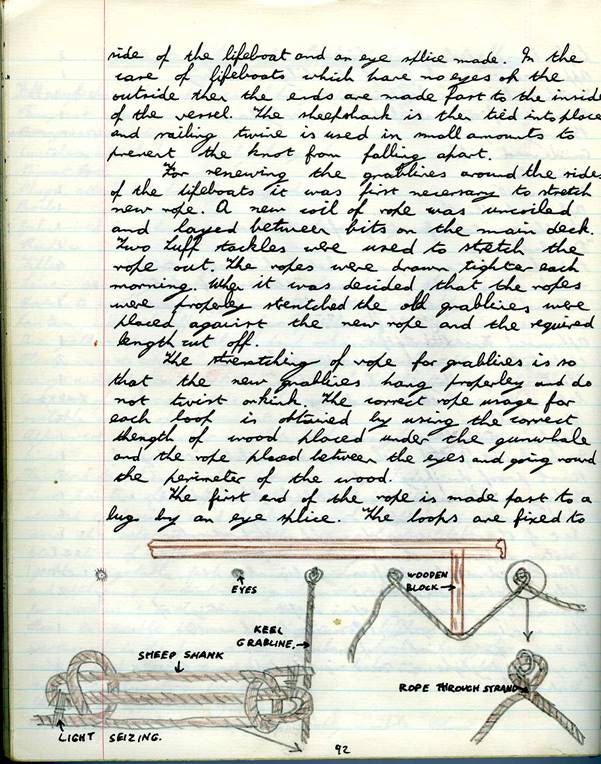 side of the lifeboat and an eye splice made. In the
case of lifeboats which have no eyes on the
outside then the ends are made fast to the inside
of the vessel. The sheepshank is then tied into place
and sailing twine is used in small amounts to
prevent the knot from falling apart.
For renewing the grablines around the sides
of the lifeboats it was first necessary to stretch
new rope. A new coil of rope was uncoiled
and layed between bits on the main deck.
Two Luff tackles were used to stretch the
rope out. The ropes were drawn tighter each
morning. When it was decided, that the ropes
were properley stretched the old grablines were
placed against the new rope and the required
length cut off.
The stretching of rope for grablines is so
that the new grablines hang properley and do
not twist or kink. The correct rope usage for
each loop is obtained by using the correct
length of wood placed under the gunwhale
and the rope placed between the eyes and going round
the perimeter of the wood.
The first end of the rope is made fast to a
lug by an eye splice. The loops are fixed to
EYES
WOODEN
BLOCK
KEEL
GRABLINE.
SHEEP SHANK
ROPE THROUGH STRAND
LIGHT SEIZING.
92